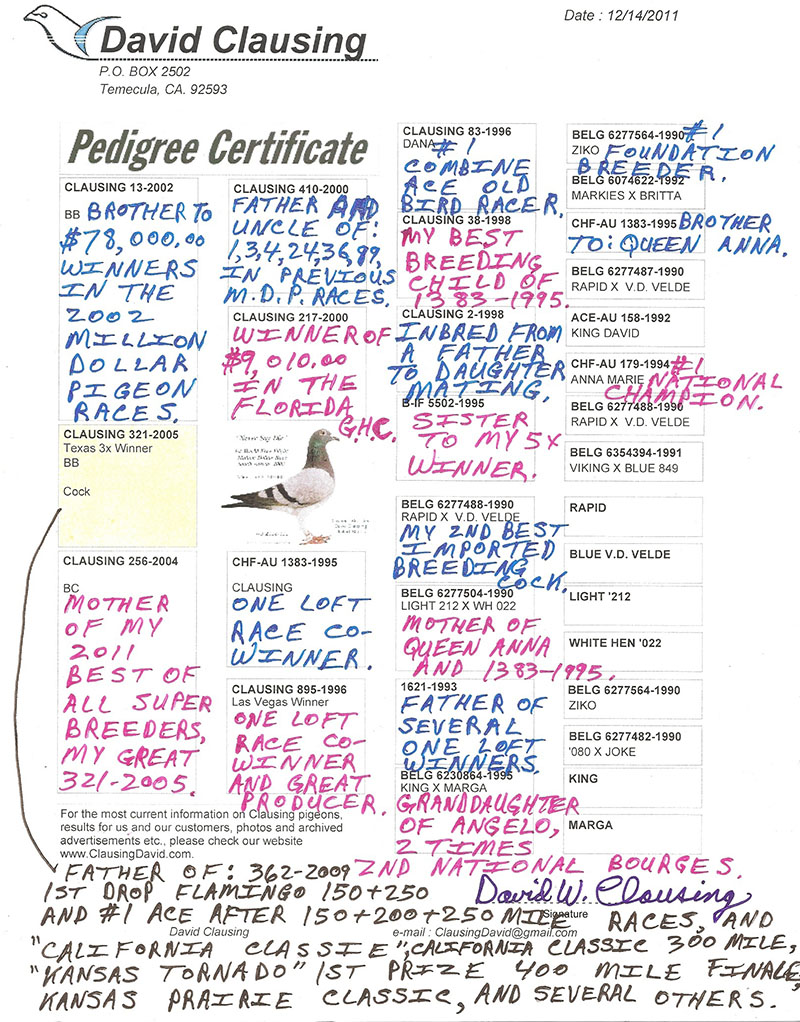 Date : 12/14/2011
David Clausing
P.O. BOX 2502
Temecula, CA. 92593
Pedigree Certificate
CLAUSING 13-2002
BB BROTHER TO
$78,000.00
WINNERS
IN THE
2002
MILLION
DOLLAR
PIGEON
RACES.
CLAUSING 321-2005
Texas 3x Winner
BB
Cock
CLAUSING 256-2004
BC
MOTHER
OF MY
2011
BEST OF
ALL SUPER
BREEDERS,
MY GREAT
321-2005.
CLAUSING 410-2000
FATHER AND
UNCLE OF:
1,3,4,24,36,89,
IN PREVIOUS
M.D.P. RACES.
CLAUSING 217-2000
WINNER OF
$9,010.00
IN THE
FLORIDA
G.H.C.
"Never Say Die"
CHF-AU 1383-1995
CLAUSING
ONE LOFT
RACE CO-
WINNER.
CLAUSING 895-1996
Las Vegas Winner
ONE LOFT
RACE CO-
WINNER
AND GREAT
PRODUCER.
CLAUSING 83-1996
DANA #1
COMBINE
ACE OLD
BIRD RACER.
CLAUSING 38-1998
MY BEST
BREEDING
CHILD OF
1383-1995.
CLAUSING 2-1998
INBRED FROM
A FATHER
TO DAUGHTER
MATING.
B-IF 5502-1995
SISTER
TO MY 5X
WINNER.
BELG 6277488-1990
RAPID X V.D. VELDE
MY 2ND BEST
IMPORTED
BREEDING
COCK.
BELG 6277504-1990
LIGHT 212 X WH 022
MOTHER OF
QUEEN ANNA
AND 1383-1995.
1621-1993
FATHER OF
SEVERAL
ONE LOFT
WINNERS.
BELG 6230864-1995
KING X MARGA
GRANDDAUGHTER
OF ANGELO,
2 TIMES
2ND NATIONAL BOURGES.
BELG 6277564-1990 #1
ZIKO FOUNDATION
BREEDER.
BELG 6074622-1992
MARKIES X BRITTA
CHF-AU 1383-1995 BROTHER
TO: QUEEN ANNA.
BELG 6277487-1990
RAPID X V.D. VELDE
ACE-AU 158-1992
KING DAVID
CHF-AU 179-1994 #1
ANNA MARIE NATIONAL
CHAMPION.
BELG 6277488-1990
RAPID X V.D. VELDE
BELG 6354394-1991
VIKING X BLUE 849
RAPID
BLUE V.D. VELDE
LIGHT '212
WHITE HEN '022
BELG 6277564-1990
ZIKO
BELG 6277482-1990
'080 X JOKE
KING
MARGA
For the most current information on Clausing pigeons,
results for us and our customers, photos and archived
advertisements etc., please check our website
www.ClausingDavid.com.
FATHER OF: 362-2009
1ST DROP FLAMINGO 150+250
David W. Clausing
Signature
AND #1 ACE AFTER 150+200+250 MILE RACES, AND
David Clausing
e-mail : ClausingDavid@gmail.com
"CALIFORNIA CLASSIE", CALIFORNIA CLASSIC 300 MILE,
"KANSAS TORNADO" 1ST PRIZE 400 MILE FINALE,
KANSAS PRAIRIE CLASSIC, AND SEVERAL OTHERS.